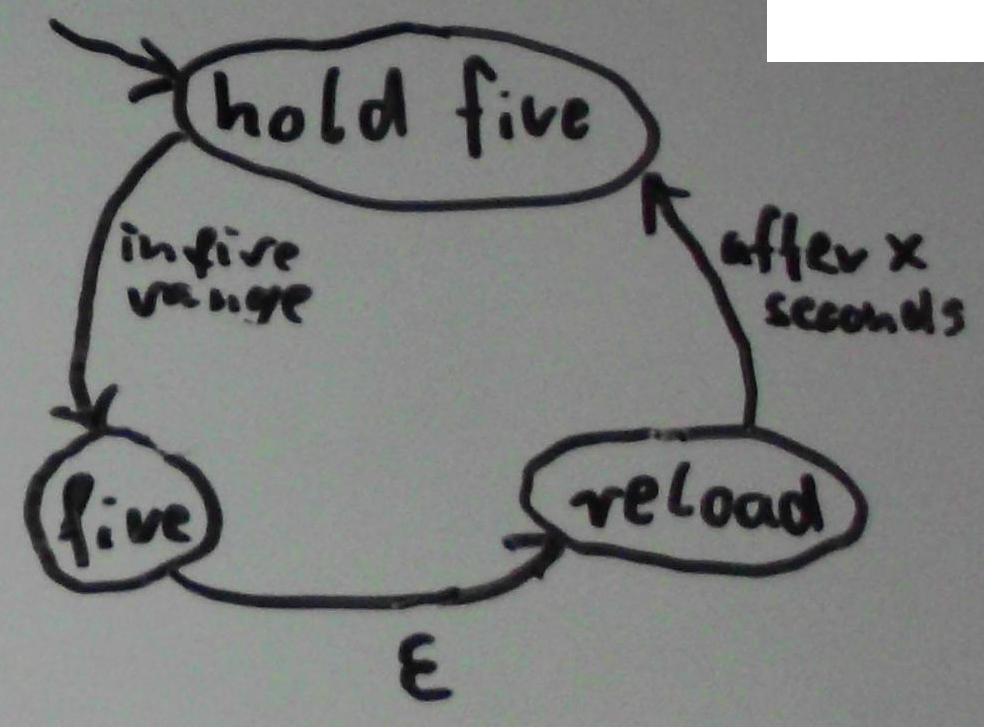 hold fire
in fire
range
after x
seconds
fire
reload
ε